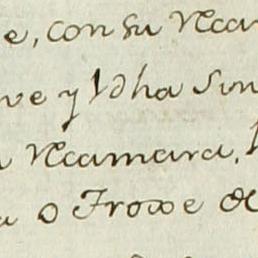 e, con su Rcar
ve y Idha sin
a Rcamara,
a o Troxe de